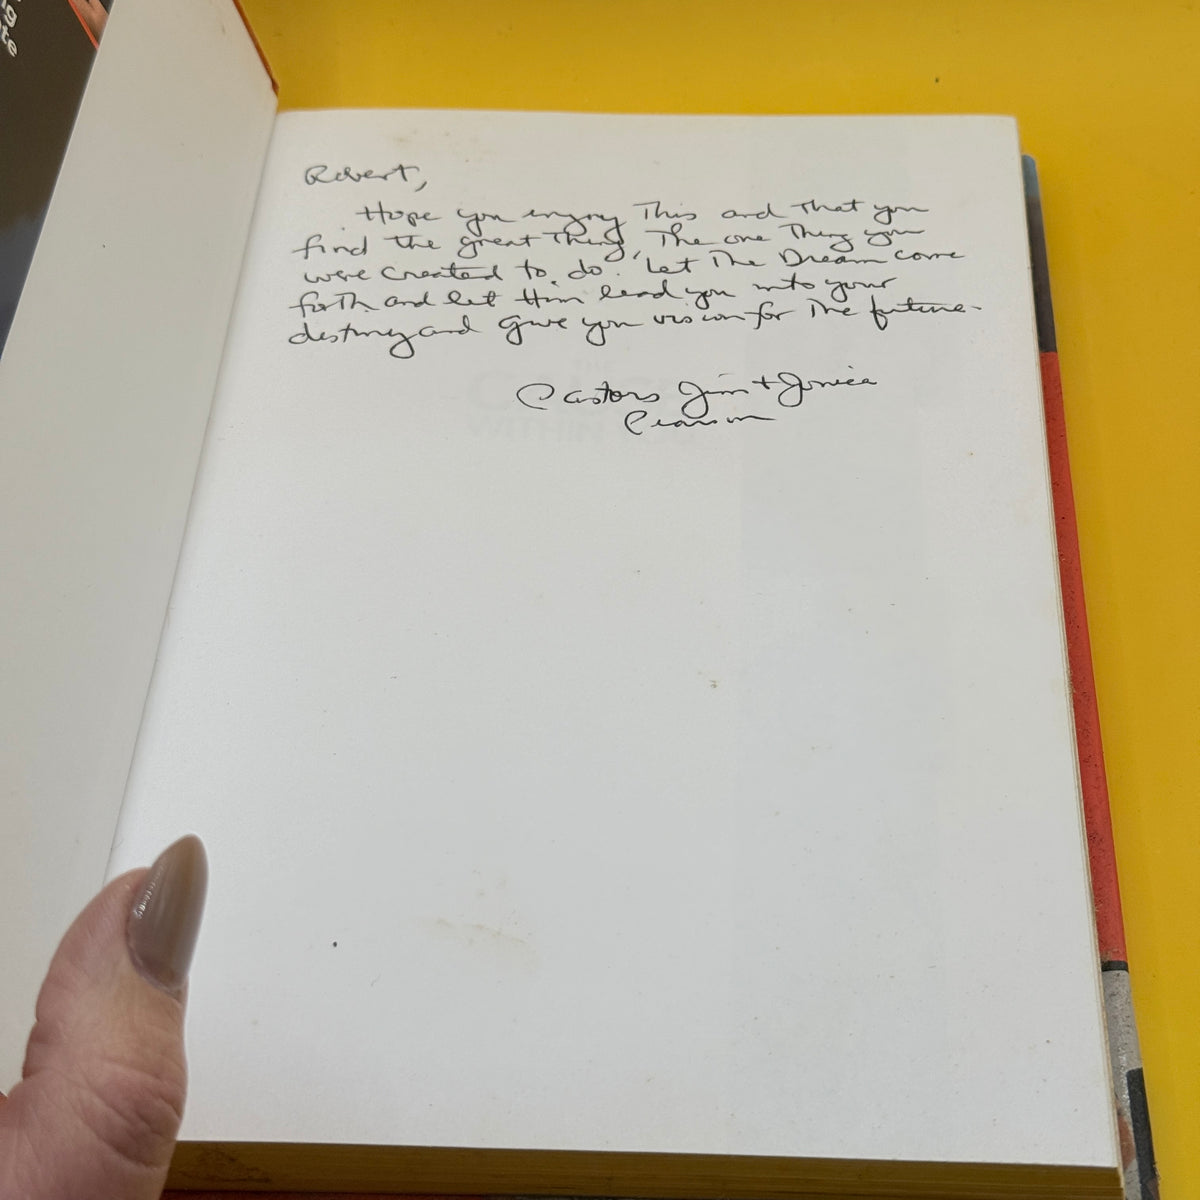 Robert,
Hope you enjoy This and That you
find the great Thing, The one Thing you
were created to do. Let The Dream come
forth and let Him lead you into your
destiny and give you vision for The future.
Pastors Jim + 
Pearson
WITHIN